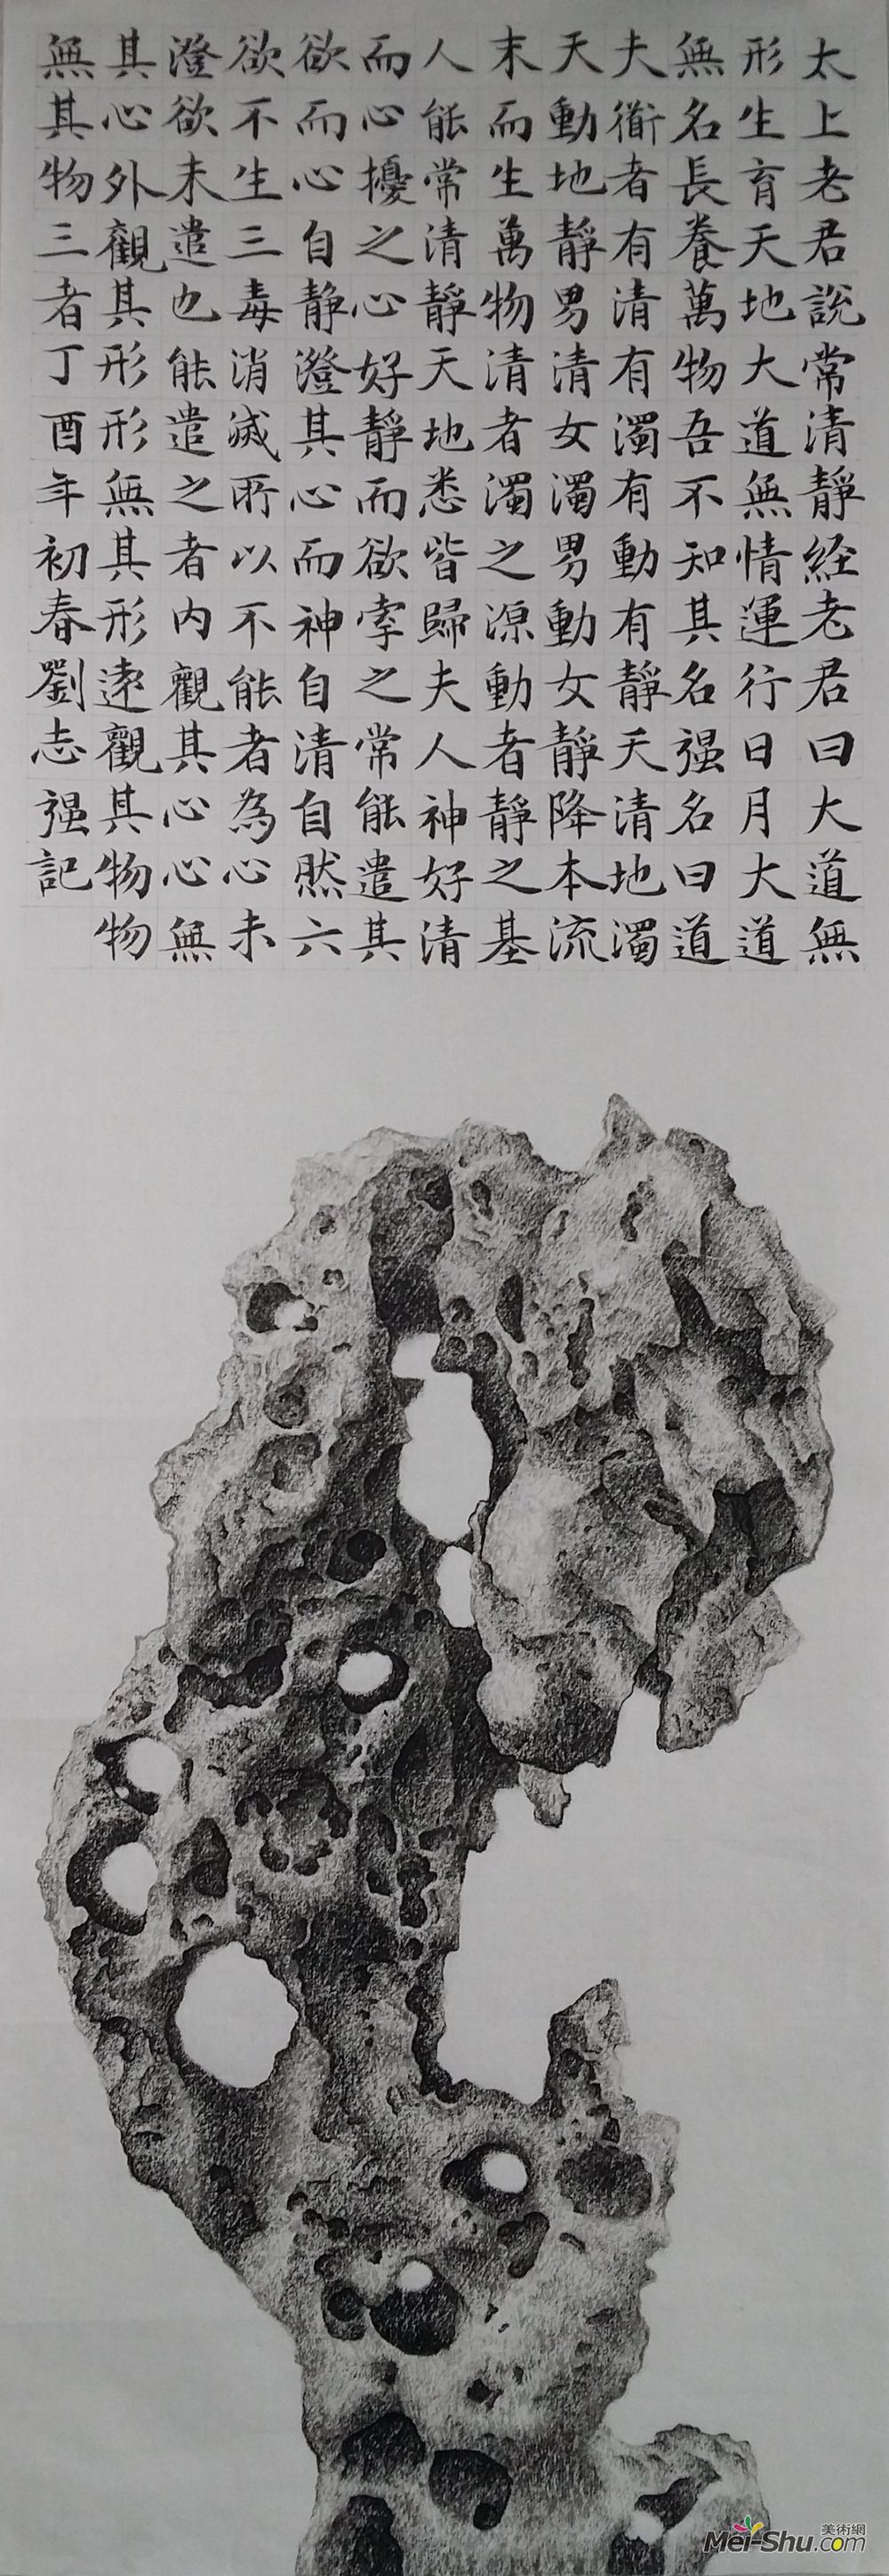 太上老君說常清靜経老君曰大道無
形生育天地大道無情運行日月大道
無名長養萬物吾不知其名强名曰道
夫衜者有清有濁有動有靜天清地濁
天動地靜男清女濁男動女靜降本流
末而生萬物清者濁之源動者靜之基
人能常清靜天地悉皆歸夫人神好清
而心擾之心好靜而欲牽之常能遣其
欲而心自静澄其心而神自清自然六
欲不生三毒消滅所以不能者為心未
澄欲未遣也能遣之者内觀其心心無
其心外觀其形形無其形遠觀其物物
無其物三者丁酉年初春劉志强記
美術網
Mei-Shu.com